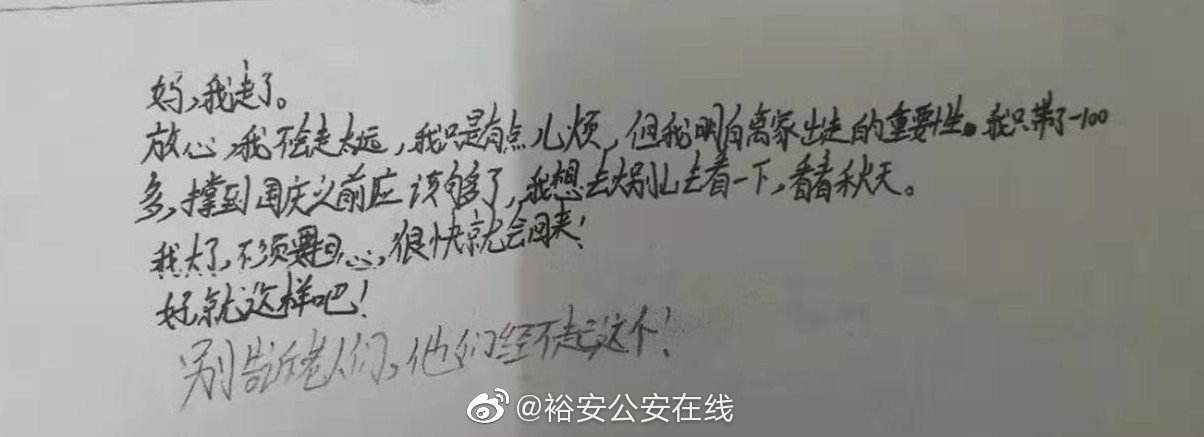 妈,我走了。
放心,我不会走太远,我只是有点儿烦,但我明白离家出走的重要性。我只带了一100
多,撑到国庆之前应该够了,我想去大别山去看一下,看看秋天。
我大了,不须要担心,很快就会回来!
好就这样吧!
别告诉老人们,他们经不起这个!
@裕安公安在线